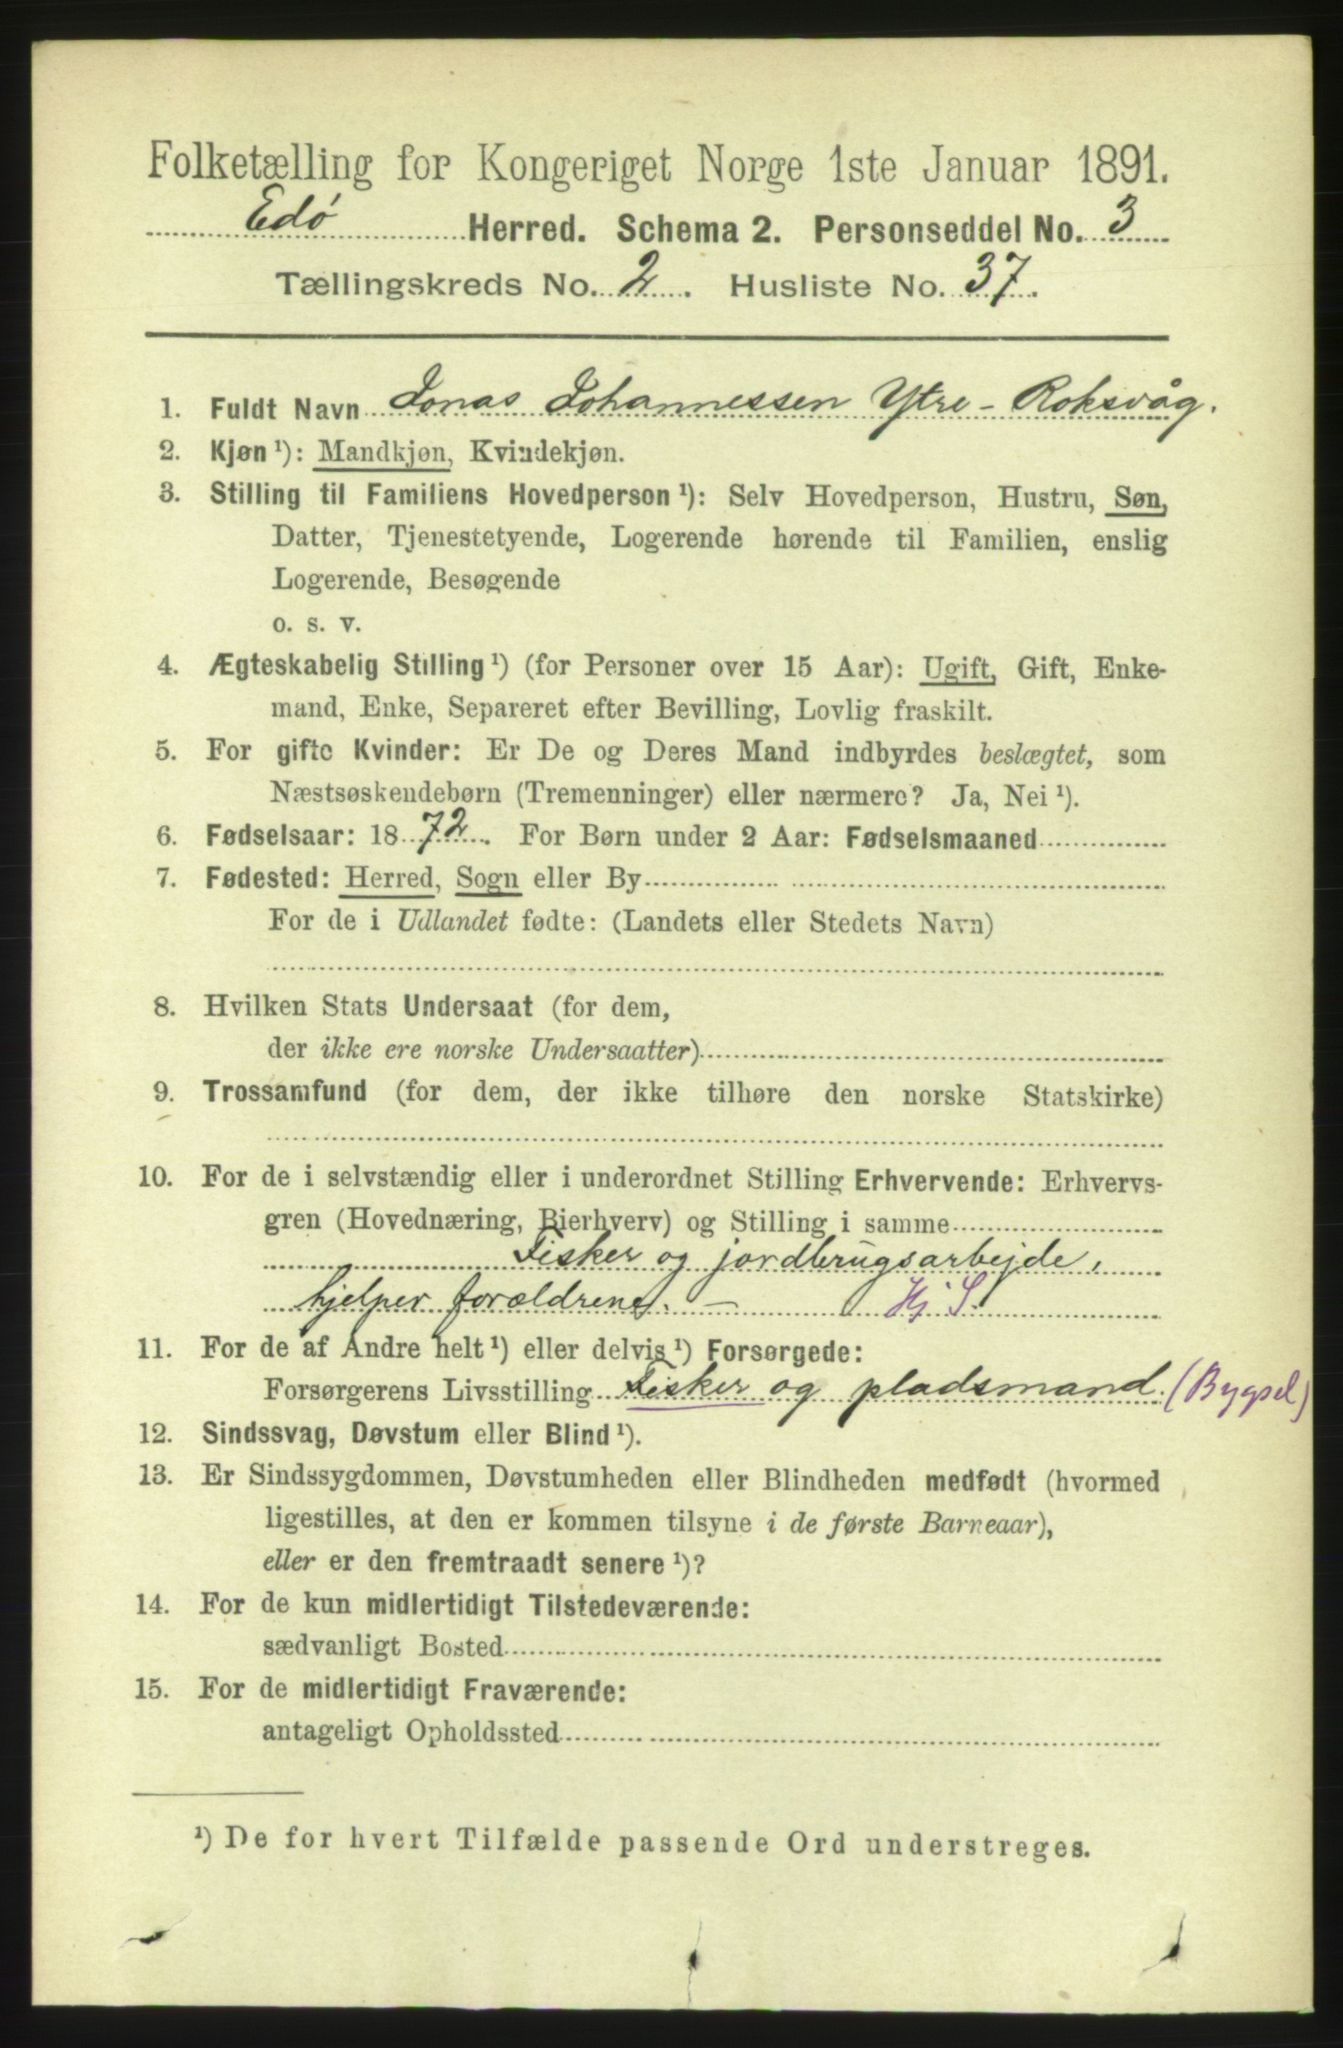 Folketælling for Kongeriget Norge 1ste Januar 1891.
Edø Herred. Schema 2. Personseddel No. 3
Tællingskreds No. 2. Husliste No. 37.
1. Fuldt Navn Jonas Johannessen Ytre-Roksvåg.
2. Kjøn ¹): Mandkjøn, Kvindekjøn.
3. Stilling til Familiens Hovedperson ¹): Selv Hovedperson, Hustru, Søn,
Datter, Tjenestetyende, Logerende hørende til Familien, enslig
Logerende, Besøgende
o. s. v.
4. Ægteskabelig Stilling ¹) (for Personer over 15 Aar): Ugift, Gift, Enke-
mand, Enke, Separeret efter Bevilling, Lovlig fraskilt.
5. For gifte Kvinder: Er De og Deres Mand indbyrdes beslægtet, som
Næstsøskendebørn (Tremenninger) eller nærmere? Ja, Nei ¹).
6. Fødselsaar: 1872. For Børn under 2 Aar: Fødselsmaaned
7. Fødested: Herred, Sogn eller By
For de i Udlandet fødte: (Landets eller Stedets Navn)
8. Hvilken Stats Undersaat (for dem,
der ikke ere norske Undersaatter)
9. Trossamfund (for dem, der ikke tilhøre den norske Statskirke)
10. For de i selvstændig eller i underordnet Stilling Erhvervende: Erhvervs-
gren (Hovednæring, Bierhverv) og Stilling i samme
Fisker og jordbrugsarbejde,
hjelper forældrene. — Hj S.
11. For de af Andre helt ¹) eller delvis ¹) Forsørgede:
Forsørgerens Livsstilling Fisker og pladsmand. (Bygsel)
12. Sindssvag, Døvstum eller Blind ¹).
13. Er Sindssygdommen, Døvstumheden eller Blindheden medfødt (hvormed
ligestilles, at den er kommen tilsyne i de første Barneaar),
eller er den fremtraadt senere ¹)?
14. For de kun midlertidigt Tilstedeværende:
sædvanligt Bosted
15. For de midlertidigt Fraværende:
antageligt Opholdssted
¹) De for hvert Tilfælde passende Ord understreges.